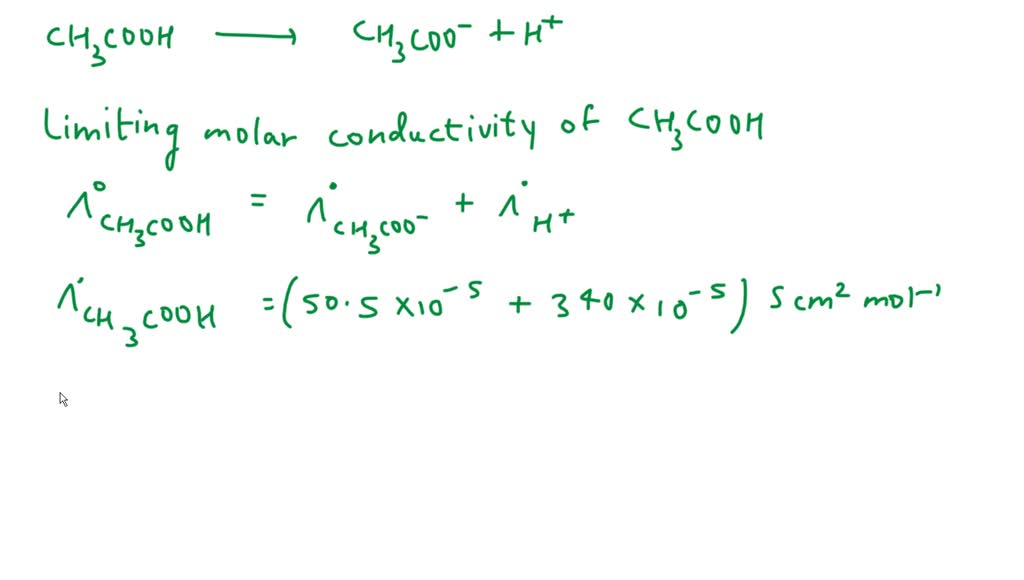 CH₃COOH ⟶ CH₃COO⁻ + H⁺
Limiting molar conductivity of CH₃COOH
Λ°CH₃COOH = Λ°CH₃COO⁻ + Λ°H⁺
Λ°CH₃COOH = (50.5 × 10⁻⁵ + 340 × 10⁻⁵) S cm² mol⁻¹